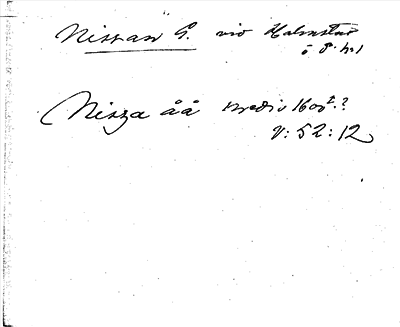 Nissan S. vid Halmstad
ö P. h. 1
Nisza åå medio 1600t.?
V: 52: 12